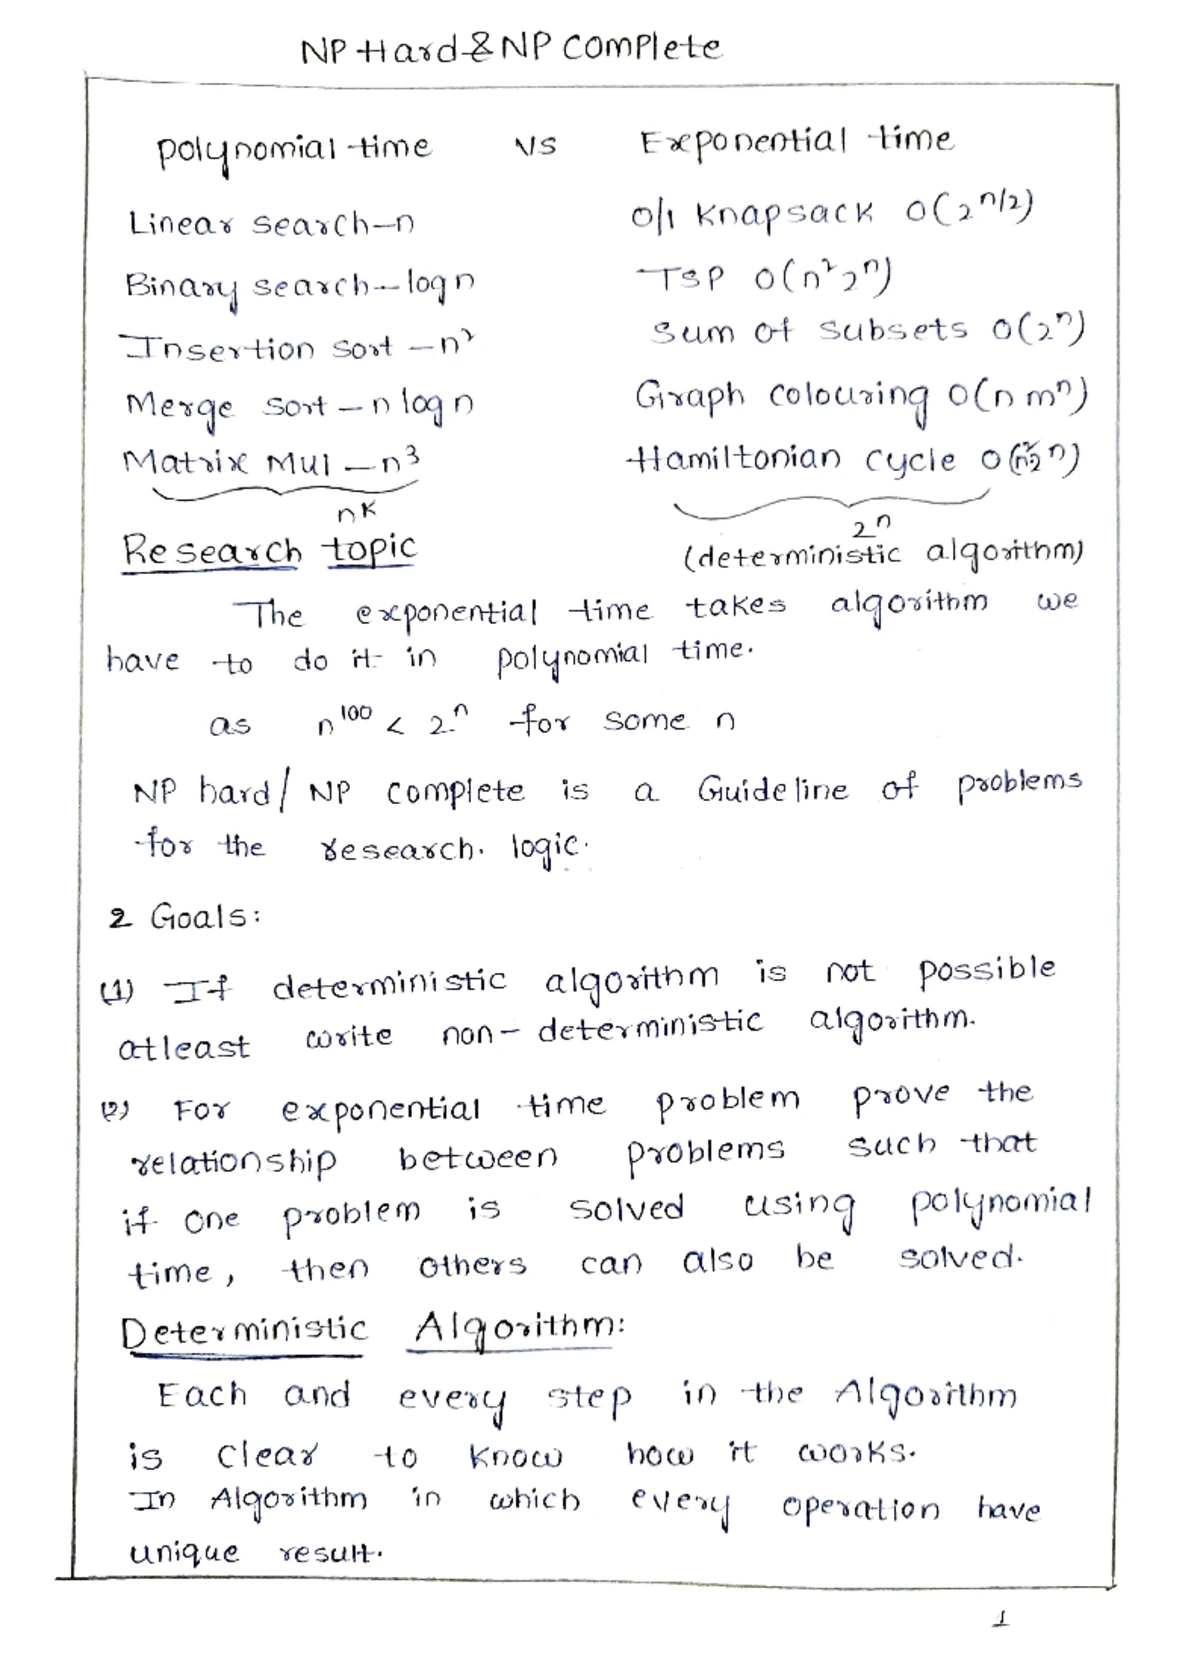 NP Hard & NP Complete
Polynomial time VS Exponential time
Linear search - n
0/1 Knapsack O(2^n/2)
Binary search - log n
TSP O(n² 2ⁿ)
Insertion sort - n²
Sum of subsets O(2ⁿ)
Merge sort - n log n
Graph colouring O(n mⁿ)
Matrix Mul - n³
Hamiltonian cycle O(n² 2ⁿ)
n^k
2ⁿ
Research topic
(deterministic algorithm)
The exponential time takes algorithm we
have to do it in polynomial time.
as n¹⁰⁰ < 2ⁿ for some n
NP hard / NP complete is a Guideline of problems
for the research. logic.
2 Goals:
(1) If deterministic algorithm is not possible
atleast write non-deterministic algorithm.
(2) For exponential time problem prove the
relationship between problems such that
if one problem is solved using polynomial
time, then others can also be solved.
Deterministic Algorithm:
Each and every step in the Algorithm
is clear to know how it works.
In Algorithm in which every operation have
unique result.
1